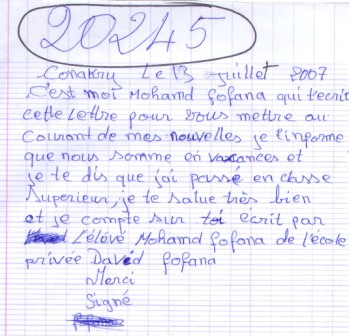 20245
Conakry Le 13 juillet 2007
C'est moi Mohamd fofana qui t'ecrit
cette Lettre pour vous mettre au
Courant de mes nouvelles je l'informe
que nous somme en vacances et
je te dis que j'ai passé en classe
Superieur, je te salue très bien
et je compte sur toi écrit par
L'élévé Mohamd fofana de l'école
privée David fofana
Merci
Signé